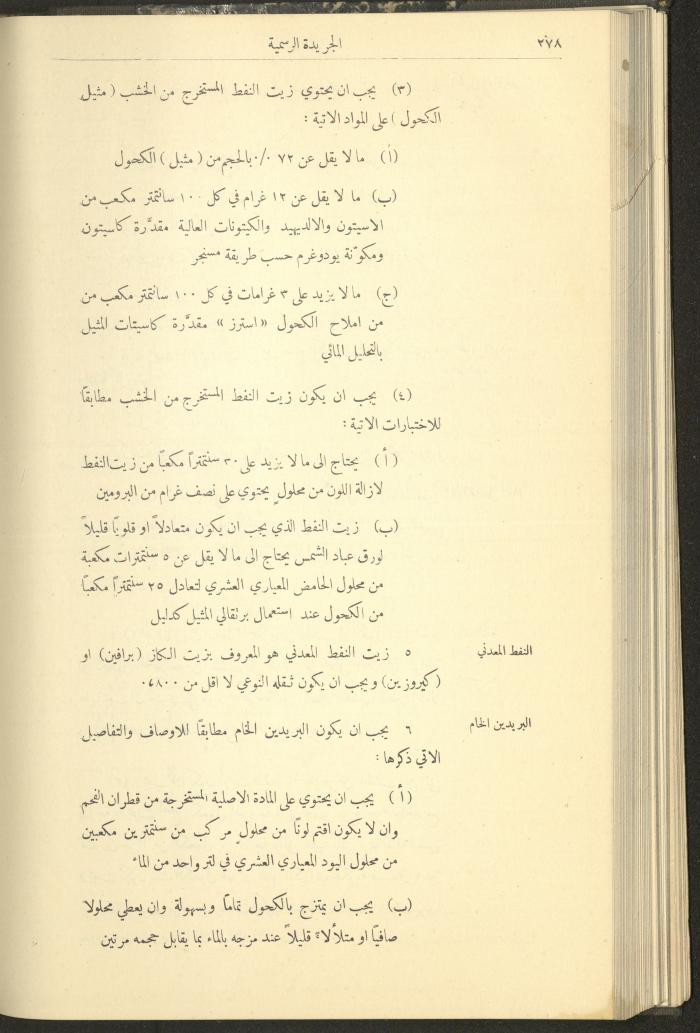 ٢٧٨
الجريدة الرسمية
(٣) يجب ان يحتوي زيت النفط المستخرج من الخشب (مثيل
الكحول) على المواد الاتية :
(أ) ما لا يقل عن ٧٢ ٠/٠ بالحجم من (مثيل) الكحول
(ب) ما لا يقل عن ١٢ غرام في كل ١٠٠ سانتمتر مكعب من
الاسيتون والالديهيد والكيتونات العالية مقدَّرة كاسيتون
ومكوّنة يودوغرم حسب طريقة مسنجر
(ج) ما لا يزيد على ٣ غرامات في كل ١٠٠ سانتمتر مكعب من
من املاح الكحول «استرز» مقدَّرة كاسيتات المثيل
بالتحليل المائي
(٤) يجب ان يكون زيت النفط المستخرج من الخشب مطابقًا
للاختبارات الاتية :
(أ) يحتاج الى ما لا يزيد على ٣٠ سنتمتراً مكعبًا من زيت النفط
لازالة اللون من محلولٍ يحتوي على نصف غرام من البرومين
(ب) زيت النفط الذي يجب ان يكون متعادلاً او قلويًا قليلاً
لورق عباد الشمس يحتاج الى ما لا يقل عن ٥ سنتمترات مكعبة
من محلول الحامض المعياري العشري لتعادل ٢٥ سنتمتراً مكعبًا
من الكحول عند استعمال برتقالي المثيل كدليل
النفط المعدني
٥ زيت النفط المعدني هو المعروف بزيت الكاز (برافين) او
(كيروزين) ويجب ان يكون ثقله النوعي لا اقل من ٠٬٨٠٠
البريدين الخام
٦ يجب ان يكون البريدين الخام مطابقًا للاوصاف والتفاصيل
الاتي ذكرها :
(أ) يجب ان يحتوي على المادة الاصلية المستخرجة من قطران الفحم
وان لا يكون اقتم لونًا من محلولٍ مركب من سنتمترين مكعبين
من محلول اليود المعياري العشري في لتر واحد من الماء
(ب) يجب ان يمتزج بالكحول تمامًا وبسهولة وان يعطي محلولا
صافيًا او متلألاً قليلاً عند مزجه بالماء بما يقابل حجمه مرتين